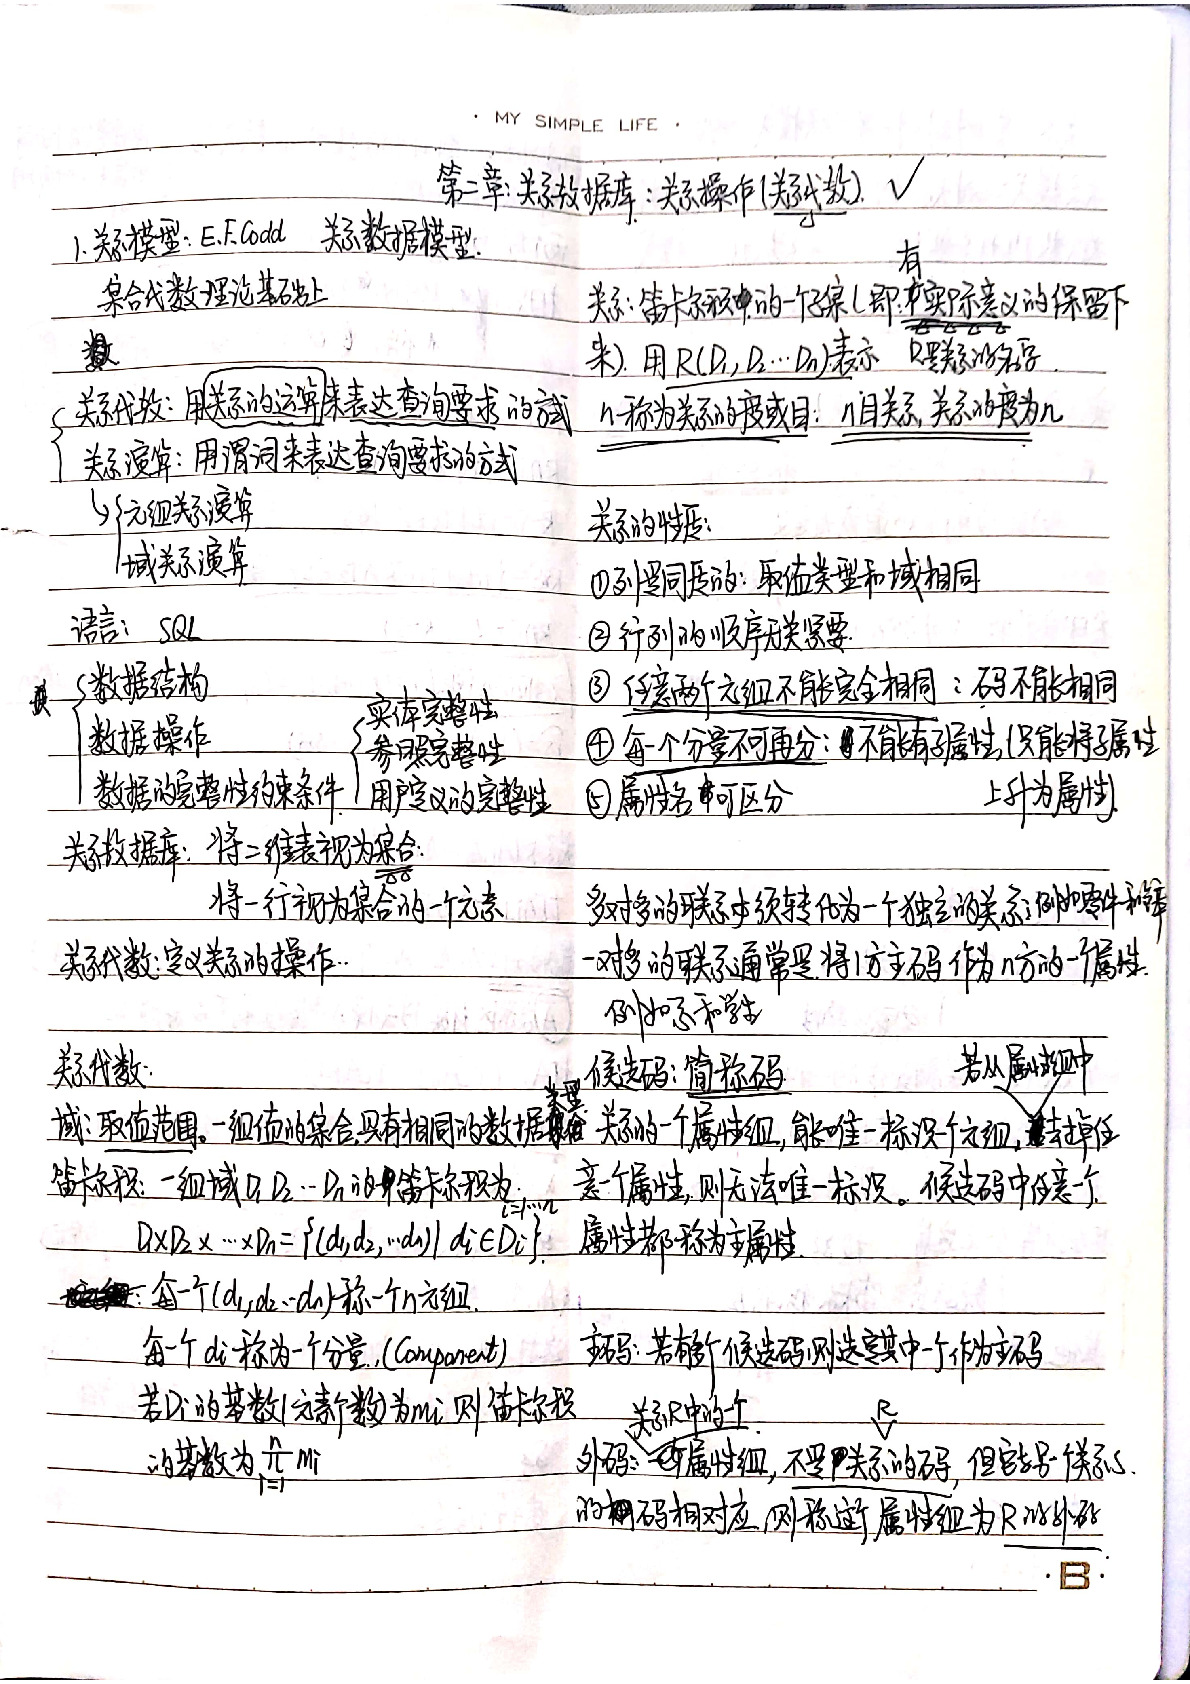 · MY SIMPLE LIFE ·
第二章:关系数据库:关系操作(关系代数). ✓
1.关系模型: E.F.Codd 关系数据模型.
集合代数理论基础上
关系代数:用关系的运算来表达查询要求的方式
关系演算:用谓词来表达查询要求的方式
元组关系演算
域关系演算
语言: SQL
数据结构
数据操作
数据的完整性约束条件
实体完整性
参照完整性
用户定义的完整性
关系数据库: 将二维表视为集合:
将一行视为集合的一个元素
关系代数:定义关系的操作..
关系代数:
域:取值范围。一组值的集合,具有相同的数据类型
笛卡尔积:一组域D1 D2 … Dn的笛卡尔积为:
D1×D2×…×Dn={(d1,d2,…dn)| di∈Di}. i=1…n
:每一个(d1,d2…dn)称一个n元组.
每一个di称为一个分量.(Component)
若Di的基数(元素个数)为mi则笛卡尔积
的基数为 n π i=1 mi
关系:笛卡尔积中的一个子集(即:有实际意义的保留下
来). 用R(D1, D2…Dn)表示 R是关系的名字
n称为关系的度或目: n目关系,关系的度为n
关系的性质:
①列是同质的:取值类型和域相同
②行列的顺序无关紧要.
③任意两个元组不能完全相同:码不能相同
④每一个分量不可再分:不能有子属性(只能将子属性
上升为属性).
⑤属性名可区分
多对多的联系必须转化为一个独立的关系:例如零件和
一对多的联系通常是将1方主码作为n方的一个属性.
例如系和学生
候选码:简称码 若从属性组中
关系的一个属性组,能唯一标识一个元组,去掉任
意一个属性,则无法唯一标识。候选码中任意一个
属性都称为主属性.
主码:若有多个候选码,则选定其中一个作为主码
关系R中的一个 R
外码:属性组,不是关系的码,但它与另一个关系S.
的码相对应,则称这个属性组为R的外码
·B·